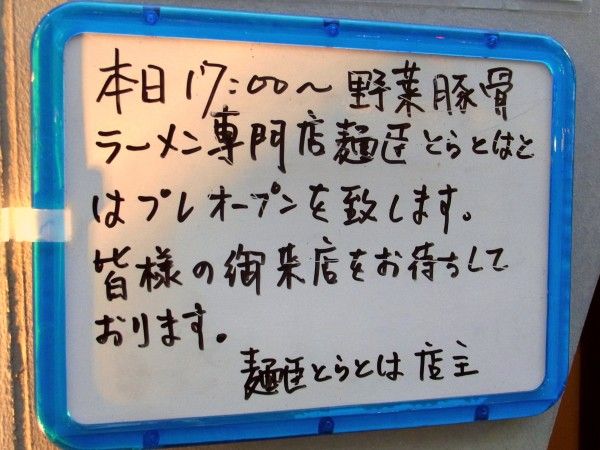 本日17:00~野菜豚骨
ラーメン専門店麺匠とらとはと
はプレオープンを致します。
皆様の御来店をお待ちして
おります。
麺匠とらとは 店主